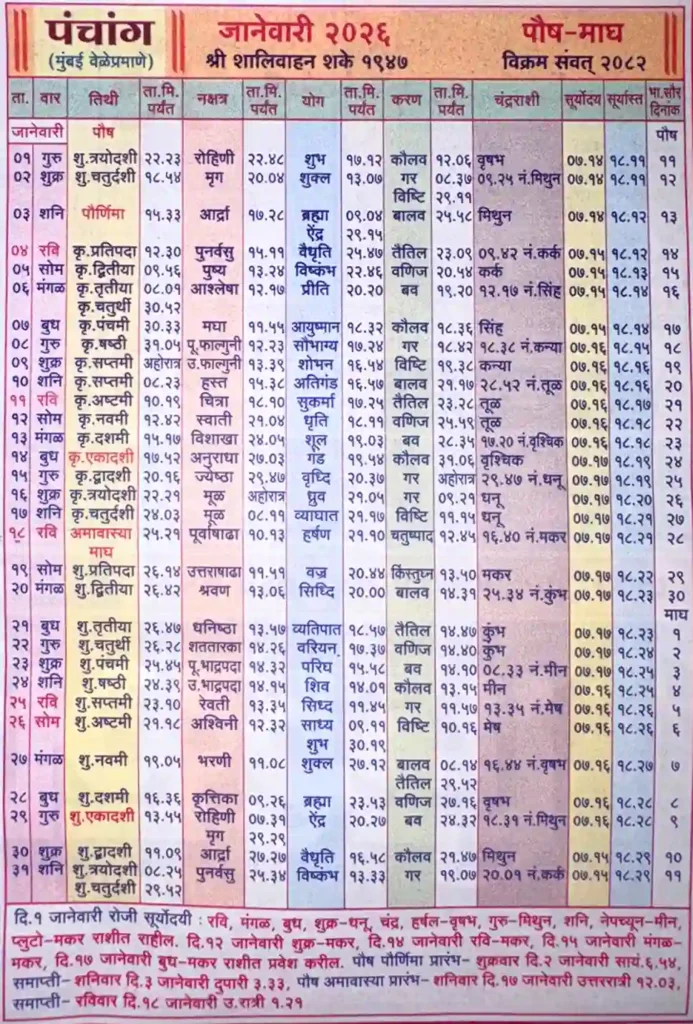 पंचांग जानेवारी २०२६ पौष-माघ
(मुंबई वेळेप्रमाणे) श्री शालिवाहन शके १९४७ विक्रम संवत् २०८२
ता. वार तिथी ता.मि. पर्यंत नक्षत्र ता.मि. पर्यंत योग ता.मि. पर्यंत करण ता.मि. पर्यंत चंद्रराशी सूर्योदय सूर्यास्त भा.सौर दिनांक
जानेवारी पौष पौष
०१ गुरु शु.त्रयोदशी २२.२३ रोहिणी २२.४८ शुभ १७.१२ कौलव १२.०६ वृषभ ०७.१४ १८.११ ११
०२ शुक्र शु.चतुर्दशी १८.५४ मृग २०.०४ शुक्ल १३.०७ गर ०८.३७ ०९.२५ नं.मिथुन ०७.१४ १८.११ १२
विष्टि २९.११
०३ शनि पौर्णिमा १५.३३ आर्द्रा १७.२८ ब्रह्मा ०९.०४ बालव २५.५८ मिथुन ०७.१४ १८.१२ १३
ऐंद्र २९.१५
०४ रवि कृ.प्रतिपदा १२.३० पुनर्वसु १५.११ वैधृति २५.४७ तैतिल २३.०९ ०९.४२ नं.कर्क ०७.१५ १८.१२ १४
०५ सोम कृ.द्वितीया ०९.५६ पुष्य १३.२४ विष्कंभ २२.४६ वणिज २०.५४ कर्क ०७.१५ १८.१३ १५
०६ मंगळ कृ.तृतीया ०८.०१ आश्लेषा १२.१७ प्रीति २०.२० बव १९.२० १२.१७ नं.सिंह ०७.१५ १८.१४ १६
कृ.चतुर्थी ३०.५२
०७ बुध कृ.पंचमी ३०.३३ मघा ११.५५ आयुष्मान १८.३२ कौलव १८.३६ सिंह ०७.१५ १८.१४ १७
०८ गुरु कृ.षष्ठी ३१.०५ पू.फाल्गुनी १२.२३ सौभाग्य १७.२४ गर १८.४२ १८.३८ नं.कन्या ०७.१६ १८.१५ १८
०९ शुक्र कृ.सप्तमी अहोरात्र उ.फाल्गुनी १३.३९ शोभन १६.५४ विष्टि १९.३८ कन्या ०७.१६ १८.१६ १९
१० शनि कृ.सप्तमी ०८.२३ हस्त १५.३८ अतिगंड १६.५७ बालव २१.१७ २८.५२ नं.तूळ ०७.१६ १८.१६ २०
११ रवि कृ.अष्टमी १०.१९ चित्रा १८.१० सुकर्मा १७.२५ तैतिल २३.२८ तूळ ०७.१६ १८.१७ २१
१२ सोम कृ.नवमी १२.४२ स्वाती २१.०४ धृति १८.११ वणिज २५.५९ तूळ ०७.१६ १८.१८ २२
१३ मंगळ कृ.दशमी १५.१७ विशाखा २४.०५ शूल १९.०३ बव २८.३५ १७.२० नं.वृश्चिक ०७.१६ १८.१८ २३
१४ बुध कृ.एकादशी १७.५२ अनुराधा २७.०३ गंड १९.५४ कौलव ३१.०६ वृश्चिक ०७.१७ १८.१९ २४
१५ गुरु कृ.द्वादशी २०.१६ ज्येष्ठा २९.४७ वृध्दि २०.३७ गर अहोरात्र २९.४७ नं.धनू ०७.१७ १८.१९ २५
१६ शुक्र कृ.त्रयोदशी २२.२१ मूळ अहोरात्र ध्रुव २१.०५ गर ०९.२१ धनू ०७.१७ १८.२० २६
१७ शनि कृ.चतुर्दशी २४.०३ मूळ ०८.११ व्याघात २१.१७ विष्टि ११.१५ धनू ०७.१७ १८.२१ २७
१८ रवि अमावास्या २५.२१ पूर्वाषाढा १०.१३ हर्षण २१.१० चतुष्पाद १२.४५ १६.४० नं.मकर ०७.१७ १८.२१ २८
माघ
१९ सोम शु.प्रतिपदा २६.१४ उत्तराषाढा ११.५१ वज्र २०.४४ किंस्तुघ्न १३.५० मकर ०७.१७ १८.२२ २९
२० मंगळ शु.द्वितीया २६.४२ श्रवण १३.०६ सिध्दि २०.०० बालव १४.३१ २५.३४ नं.कुंभ ०७.१७ १८.२३ ३०
माघ
२१ बुध शु.तृतीया २६.४७ धनिष्ठा १३.५७ व्यतिपात १८.५७ तैतिल १४.४७ कुंभ ०७.१७ १८.२३ १
२२ गुरु शु.चतुर्थी २६.२८ शततारका १४.२६ वरियन १७.३७ वणिज १४.४० कुंभ ०७.१७ १८.२४ २
२३ शुक्र शु.पंचमी २५.४५ पू.भाद्रपदा १४.३२ परिघ १५.५८ बव १४.१० ०८.३३ नं.मीन ०७.१७ १८.२५ ३
२४ शनि शु.षष्ठी २४.३९ उ.भाद्रपदा १४.१५ शिव १४.०१ कौलव १३.१५ मीन ०७.१६ १८.२५ ४
२५ रवि शु.सप्तमी २३.१० रेवती १३.३५ सिध्द ११.४५ गर ११.५७ १३.३५ नं.मेष ०७.१६ १८.२६ ५
२६ सोम शु.अष्टमी २१.१८ अश्विनी १२.३२ साध्य ०९.११ विष्टि १०.१६ मेष ०७.१६ १८.२६ ६
शुभ ३०.१९
२७ मंगळ शु.नवमी १९.०५ भरणी ११.०८ शुक्ल २७.१२ बालव ०८.१४ १६.४४ नं.वृषभ ०७.१६ १८.२७ ७
तैतिल २९.५२
२८ बुध शु.दशमी १६.३६ कृत्तिका ०९.२६ ब्रह्मा २३.५३ वणिज २७.१६ वृषभ ०७.१६ १८.२८ ८
२९ गुरु शु.एकादशी १३.५५ रोहिणी ०७.३१ ऐंद्र २०.२७ बव २४.३२ १८.३१ नं.मिथुन ०७.१६ १८.२८ ९
मृग २९.२९
३० शुक्र शु.द्वादशी ११.०९ आर्द्रा २७.२७ वैधृति १६.५८ कौलव २१.४७ मिथुन ०७.१५ १८.२९ १०
३१ शनि शु.त्रयोदशी ०८.२५ पुनर्वसु २५.३४ विष्कंभ १३.३३ गर १९.०७ २०.०१ नं.कर्क ०७.१५ १८.२९ ११
शु.चतुर्दशी २९.५२
दि.१ जानेवारी रोजी सूर्योदयी : रवि, मंगळ, बुध, शुक्र-धनू, चंद्र, हर्षल-वृषभ, गुरु-मिथुन, शनि, नेपच्यून-मीन,
प्लुटो-मकर राशीत राहील. दि.१२ जानेवारी शुक्र-मकर, दि.१४ जानेवारी रवि-मकर, दि.१५ जानेवारी मंगळ-
मकर, दि.१७ जानेवारी बुध-मकर राशीत प्रवेश करील. पौष पौर्णिमा प्रारंभ- शुक्रवार दि.२ जानेवारी सायं.६.५४,
समाप्ती- शनिवार दि.३ जानेवारी दुपारी ३.३३, पौष अमावास्या प्रारंभ- शनिवार दि.१७ जानेवारी उत्तररात्री १२.०३,
समाप्ती- रविवार दि.१८ जानेवारी उ.रात्री १.२१